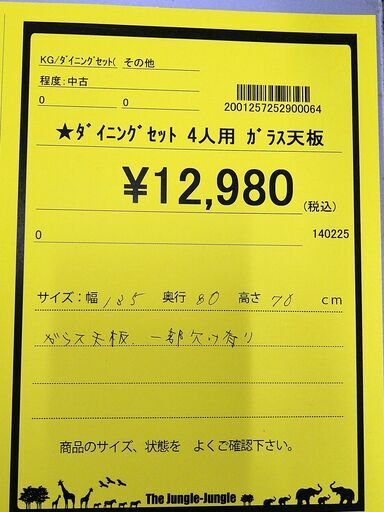 KG/ﾀﾞｲﾆﾝｸﾞｾｯﾄ( その他
程度:中古
0 0
2001257252900064
★ﾀﾞｲﾆﾝｸﾞｾｯﾄ 4人用 ｶﾞﾗｽ天板
¥12,980(税込)
0 140225
サイズ:幅 135 奥行 80 高さ 70 cm
ガラス天板、一部欠け有り
商品のサイズ、状態を よくご確認下さい。
The Jungle-Jungle